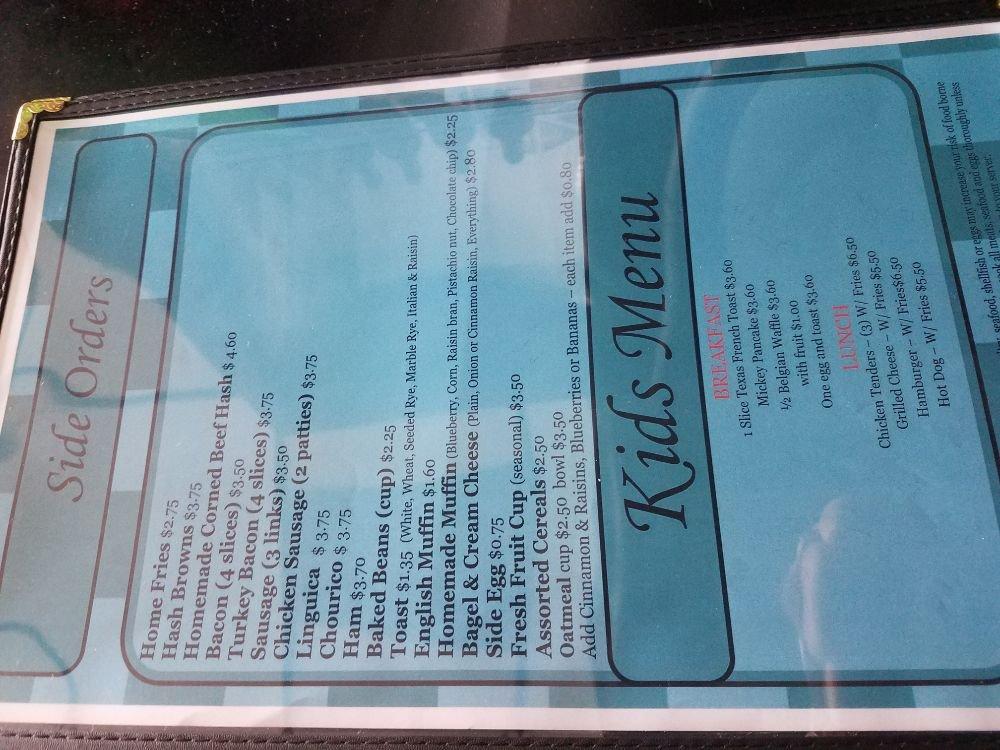 Side Orders
Home Fries $2.75
Hash Browns $3.75
Homemade Corned Beef Hash $ 4.60
Bacon (4 slices) $3.50
Turkey Bacon (4 slices) $3.75
Sausage (3 links) $3.50
Chicken Sausage (2 patties) $3.75
Linguica $ 3.75
Chourico $ 3.75
Ham $3.70
Baked Beans (cup) $2.25
Toast $1.35 (White, Wheat, Seeded Rye, Marble Rye, Italian & Raisin)
English Muffin $1.60
Homemade Muffin (Blueberry, Corn, Raisin bran, Pistachio nut, Chocolate chip) $2.25
Bagel & Cream Cheese (Plain, Onion or Cinnamon Raisin, Everything) $2.80
Side Egg $0.75
Fresh Fruit Cup (seasonal) $3.50
Assorted Cereals $2.50
Oatmeal cup $2.50 bowl $3.50
Add Cinnamon & Raisins, Blueberries or Bananas – each item add $0.80
Kids Menu
BREAKFAST
1 Slice Texas French Toast $3.60
Mickey Pancake $3.60
1/2 Belgian Waffle $3.60
with fruit $1.00
One egg and toast $3.60
LUNCH
Chicken Tenders – (3) W/ Fries $6.50
Grilled Cheese – W/ Fries $5.50
Hamburger – W/ Fries$6.50
Hot Dog – W/ Fries $5.50
seafood, shellfish or eggs may increase your risk of food borne
all meats, seafood and eggs thoroughly unless
your server.